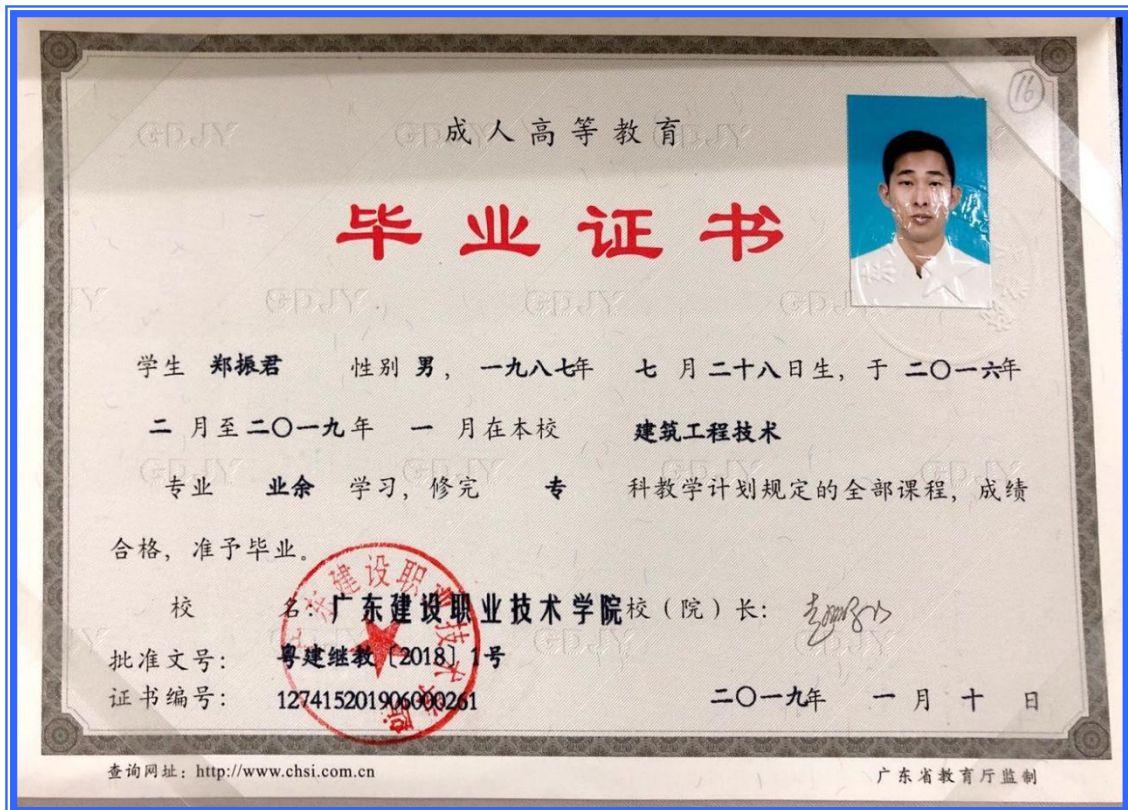 16
成人高等教育
毕业证书
学生 郑振君 性别 男，一九八七年 七 月 二十八日生，于 二〇一六年
二 月至二〇一九年 一 月在本校 建筑工程技术
专业 业余 学习，修完 专 科教学计划规定的全部课程，成绩
合格，准予毕业。
校 名：广东建设职业技术学院校（院）长：
批准文号：粤建继教〔2018〕1号
证书编号：127415201906000261 二〇一九年 一 月 十 日
查询网址：http://www.chsi.com.cn 广东省教育厅监制